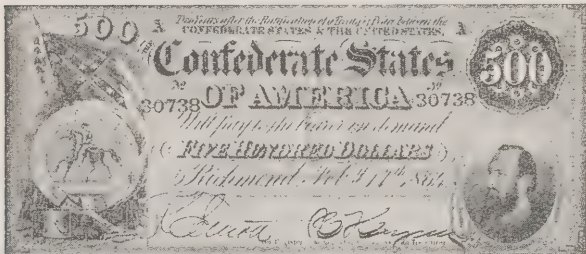 500 A Two Years after the Ratification of a Treaty of Peace between the A
CONFEDERATE STATES & THE UNITED STATES,
Confederate States 500
No No
30738 OF AMERICA 30738
Will pay to the bearer on demand
FIVE HUNDRED DOLLARS
Richmond, Feb'y 17th 1864